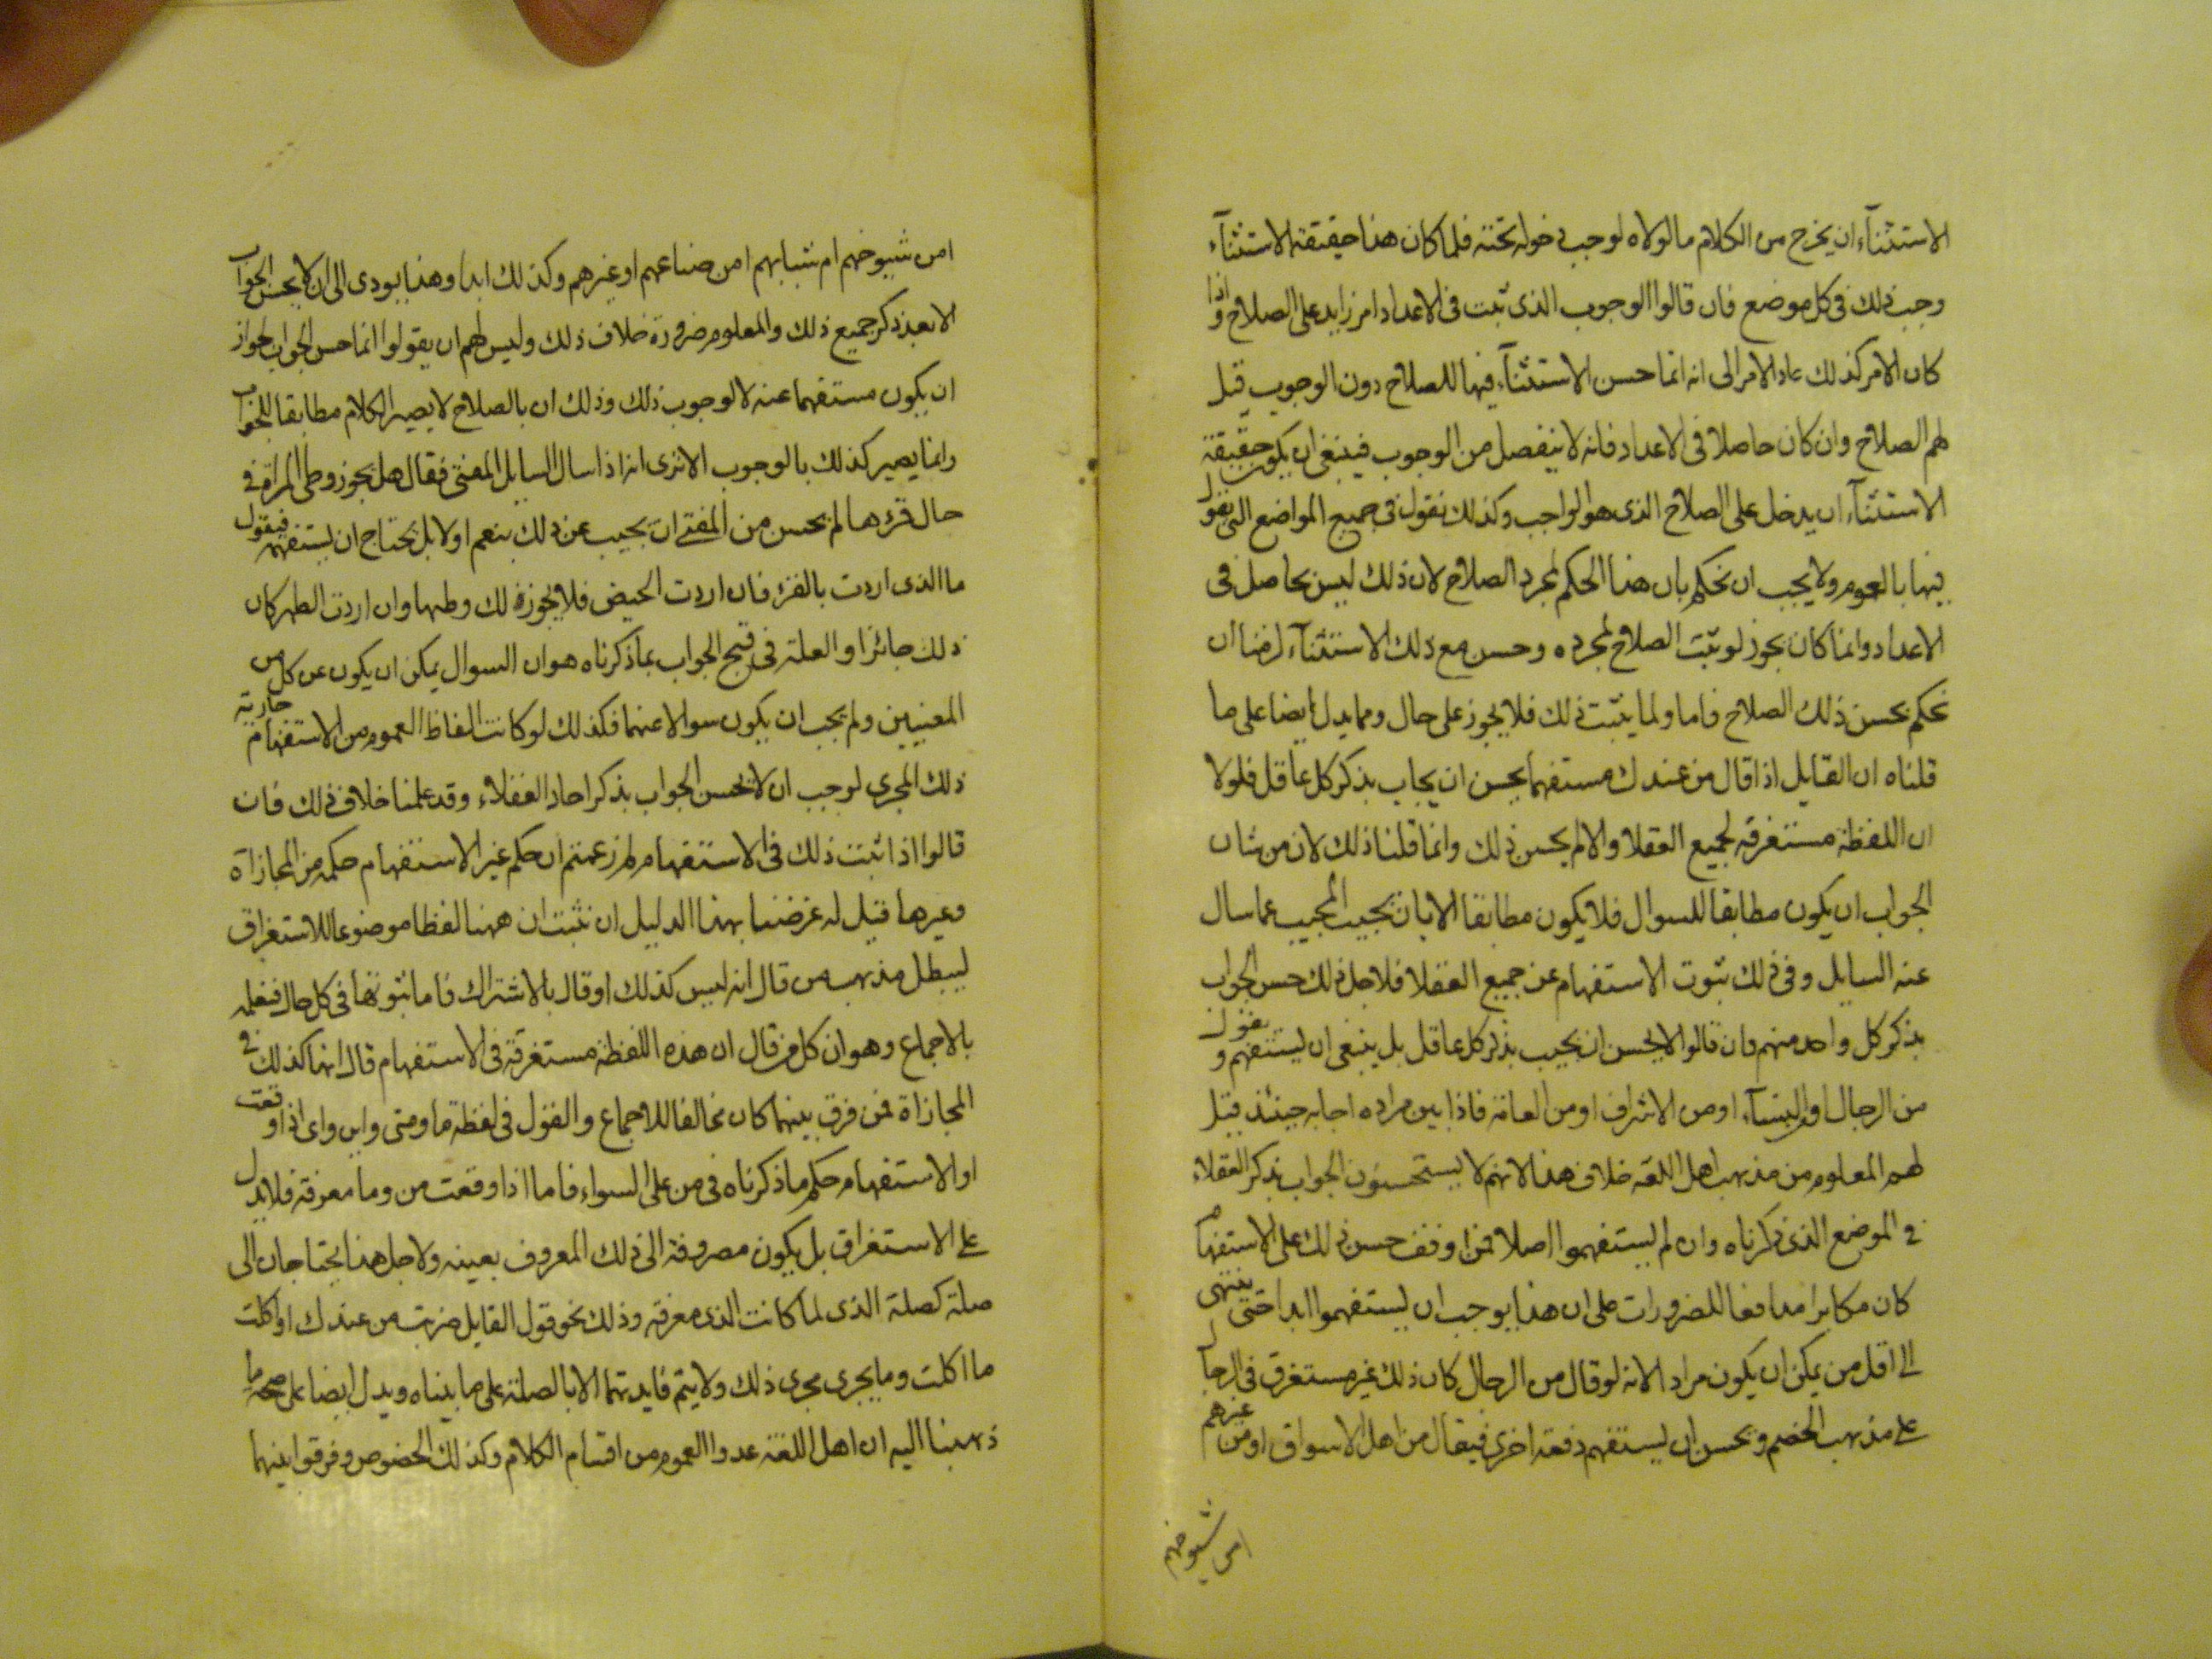 الاستثنآء ان يخرج من الكلام ما لولاه لوجب دخوله تحته فلما كان هذا حقيقة الاستثنآء
وجب ذلك فى كل موضع فان قالوا الوجوب الذى ثبت فى الاعداد امر زايد على الصلاح واذا
كان الامر كذلك عاد الامر الى انه انما حسن الاستثنآء فيها للصلاح دون الوجوب قيل
لهم الصلاح وان كان حاصلا فى الاعداد فانه لا ينفصل من الوجوب فينبغى ان يكون حقيقة
الاستثنآء ان يدخل على الصلاح الذى هو الواجب وكذلك نقول فى جميع المواضع التى نقول
فيها بالعموم ولا يجب ان نحكم بان هذا الحكم لمجرد الصلاح لان ذلك ليس بحاصل فى
الاعداد وانما كان يجوز لو ثبت الصلاح لمجرده وحسن مع ذلك الاستثنآء لزمنا ان
نحكم بحسن ذلك الصلاح فاما ولما يثبت ذلك فلا يجوز على حال ومما يدل ايضا على ما
قلناه ان القايل اذا قال من عندك مستفهما يحسن ان يجاب بذكر كل عاقل فلولا
ان اللفظة مستغرقة لجميع العقلا والا لم يحسن ذلك وانما قلنا ذلك لان من شان
الجواب ان يكون مطابقا للسوال فلا يكون مطابقا الا بان يجيب المجيب عما سال
عنه السايل وفى ذلك ثبوت الاستفهام عن جميع العقلا فلاجل ذلك حسن الجواب
بذكر كل واحد منهم فان قالوا لا يحسن ان يجيب بذكر كل عاقل بل ينبغى ان يستفهم ويقول
من الرجال او النسآء او من الاشراف او من العامة فاذا بين مراده اجابه حينئذ قيل
لهم المعلوم من مذهب اهل اللغة خلاف هذا لانهم لا يستحسنون الجواب بذكر العقلاء
فى الموضع الذى ذكرناه وان لم يستفهموا اصلا فمن اوقف حسن ذلك على الاستفهام
كان مكابرا مدافعا للضرورات على ان هذا يوجب ان يستفهموا ابدا حتى ينتهى
الى اقل من يمكن ان يكون مراد الانه لو قال من الرجال كان ذلك غير مستغرق فى الرجال
على مذهب الخصم ويحسن ان يستفهم دفعة اخرى فيقال من اهل الاسواق او من غيرهم
امن شيوخهم
امن شيوخهم ام شبابهم امن صناعهم او غيرهم وكذلك ابدا وهذا يودى الى ان لا يحسن الجواب
الا بعد ذكر جميع ذلك والمعلوم ضرورة خلاف ذلك وليس لهم ان يقولوا انما حسن الجواب لجواز
ان يكون مستفهما عنه لا لوجوب ذلك وذلك ان بالصلاح لا يصير الكلام مطابقا للجواب
وانما يصير كذلك بالوجوب الا ترى انه اذا سال السايل المفتى فقال هل يجوز وطى المراة فى
حال قرءها لم يحسن من المفتى ان يجيب عن ذلك بنعم او لا بل يحتاج ان يستفهم فيقول
ما الذى اردت بالقرء فان اردت الحيض فلا يجوز لك وطيها وان اردت الطهر كان
ذلك جائزا والعلة فى قبح الجواب بما ذكرناه هو ان السوال يمكن ان يكون عن كل من
المعنيين ولم يجب ان يكون سوالا عنهما فكذلك لو كانت الفاظ العموم من الاستفهام جارية
ذلك المجرى لوجب ان لا يحسن الجواب بذكر احاد العقلاء وقد علمنا خلاف ذلك فان
قالوا اذا ثبت ذلك فى الاستفهام لم زعمتم ان حكم غير الاستفهام حكمه من المجازاة
وغيرها قيل له غرضنا بهذا الدليل ان نثبت ان ههنا لفظا موضوعا للاستغراق
ليبطل مذهب من قال انه ليس كذلك او قال بالاشتراك فاما ثبوتها فى كل حال فنعلمه
بالاجماع وهو ان كل من قال ان هذه اللفظة مستغرقة فى الاستفهام قال انها كذلك فى
المجازاة فمن فرق بينهما كان مخالفا للاجماع والقول فى لفظة ما ومتى واين واى اذا وقعت
او الاستفهام حكم ما ذكرناه فى من على السواء فاما اذا وقعت من وما معرفة فلا يدل
على الاستغراق بل يكون مصروفة الى ذلك المعروف بعينه ولاجل هذا يحتاجان الى
صلة كصلة الذى لما كانت الذى معرفة وذلك نحو قول القايل ضربت من عندك او اكلت
ما اكلت وما يجرى مجرى ذلك ولا يتم فايدتهما الا بالصلة على ما بيناه ويدل ايضا على صحة ما
ذهبنا اليه ان اهل اللغة عدوا العموم من اقسام الكلام وكذلك الخصوص وفرقوا بينهما